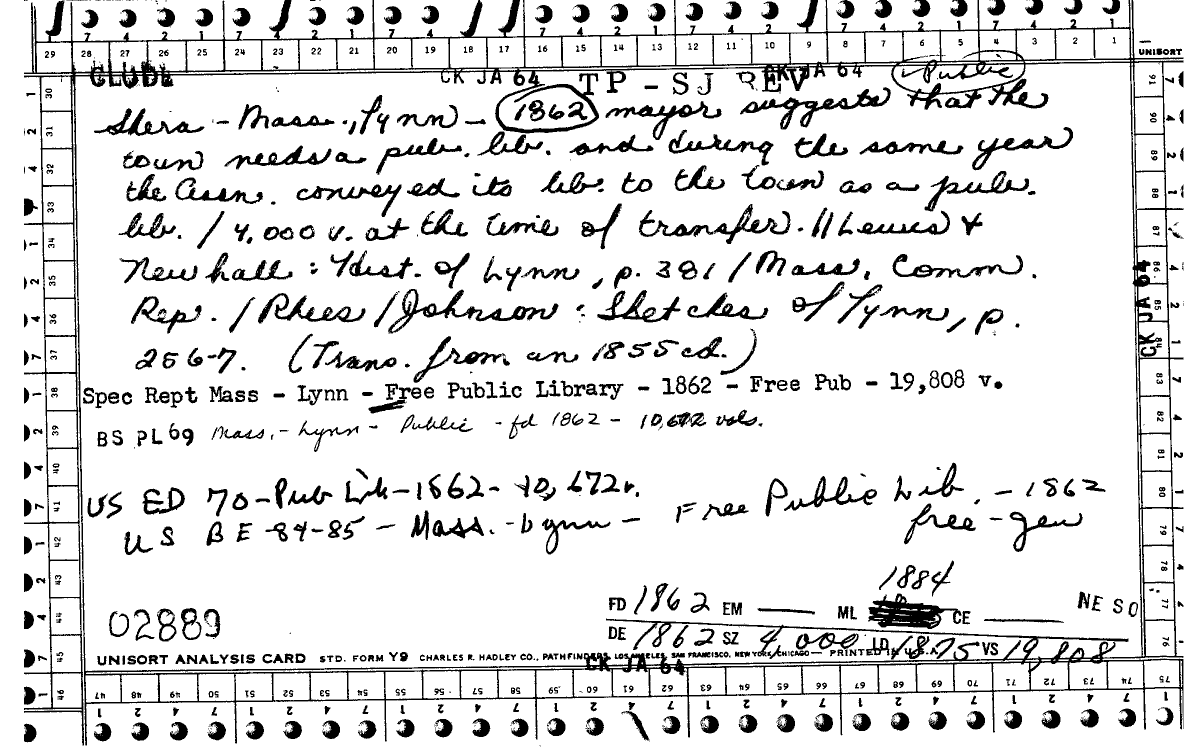 29 28 27 26 25 24 23 22 21 20 19 18 17 16 15 14 13 12 11 10 9 8 7 6 5 4 3 2 1
UNISORT
CK JA 64 TP - SJ REV CK JA 64 Public
Shera - Mass., Lynn - 1862 mayor suggests that the
town needs a pub. lib. and during the same year
the Assn. conveyed its lib. to the town as a pub.
lib. / 4,000 v. at the time of transfer. // Lewis &
Newhall : Hist. of Lynn, p. 381 / Mass. Comm.
Rep. / Rhees / Johnson : Sketches of Lynn, p.
256-7. (Trans. from an 1855 cd.)
Spec Rept Mass - Lynn - Free Public Library - 1862 - Free Pub - 19,808 v.
BS PL69 Mass. - Lynn - Public - fd 1862 - 10,672 vols.
US ED 70 - Pub Lib - 1862 - 10,672 v.
US BE -84-85 - Mass. - Lynn - Free Public Lib. - 1862
free - gen
1884
FD 1862 EM ML CE NE SO
02889
DE 1862 SZ 4,000 LD 1875 VS 19,808
UNISORT ANALYSIS CARD STD. FORM Y9 CHARLES R. HADLEY CO., PATHFINDERS, LOS ANGELES, SAN FRANCISCO, NEW YORK, CHICAGO — PRINTED IN U.S.A.
CK JA 64
CK JA 64
47 48 49 50 51 52 53 54 55 56 57 58 59 60 61 62 63 64 65 66 67 68 69 70 71 72 73 74 75